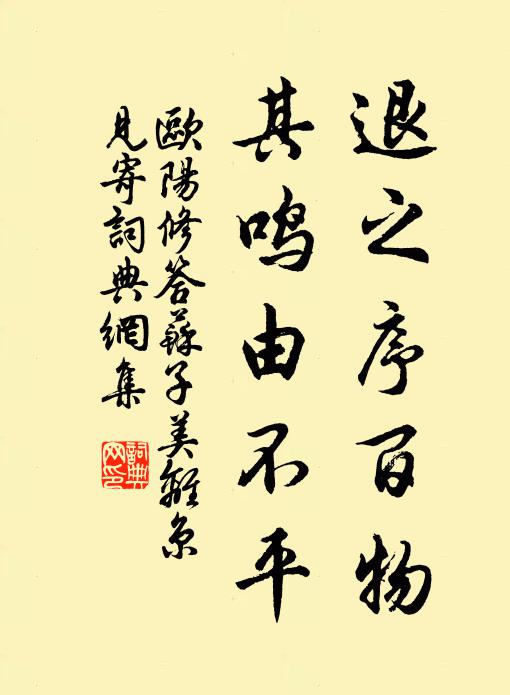 退之序百物
其鸣由不平
歐陽修答蘇子美離京
見寄詞典網集
詞典
网印